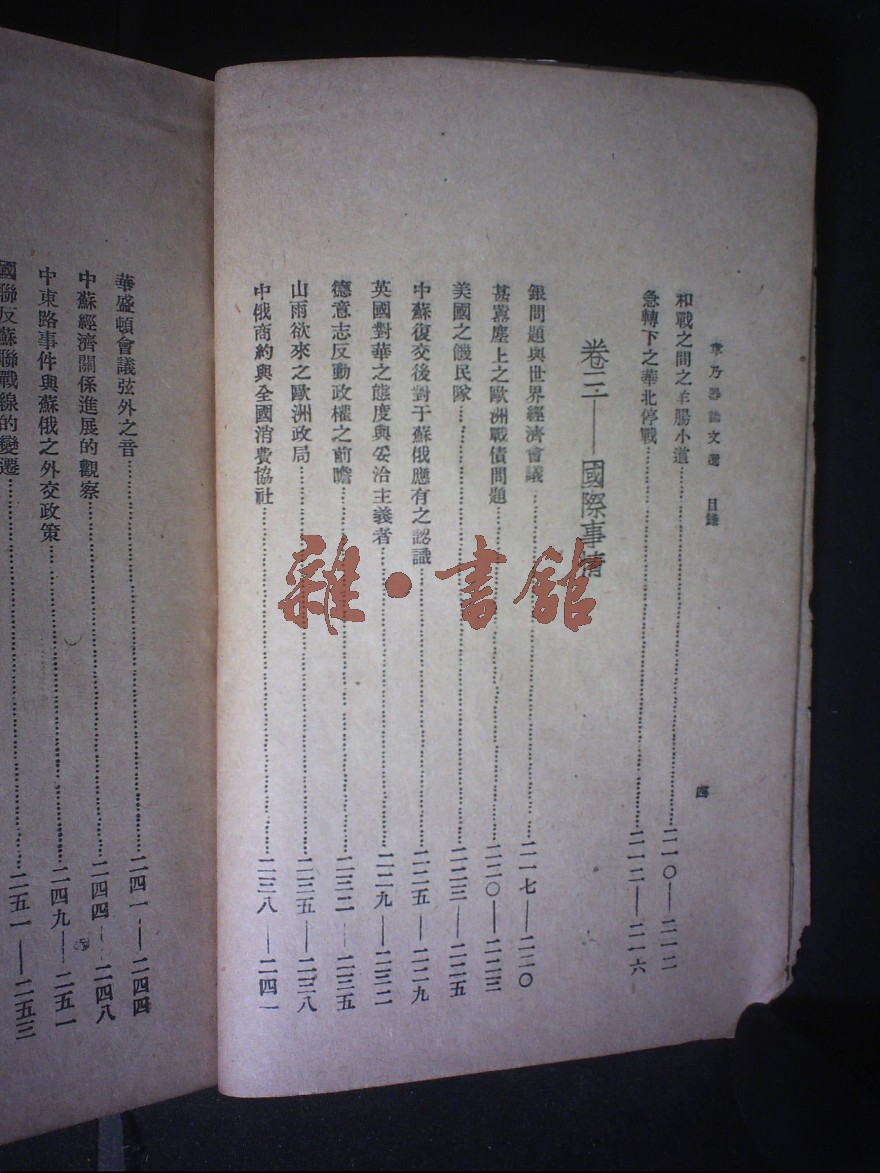 章乃器論文選 目錄
四
和戰之間之羊腸小道 二一〇—二一二
急轉下之華北停戰 二一二—二一六
卷三——國際事情
銀問題與世界經濟會議 二一七—二二〇
甚囂塵上之歐洲戰債問題 二二〇—二二三
美國之饑民隊 二二三—二二五
中蘇復交後對于蘇俄應有之認識 二二五—二二九
英國對華之態度與妥洽主義者 二二九—二三二
德意志反動政權之前瞻 二三二—二三五
山雨欲來之歐洲政局 二三五—二三八
中俄商約與全國消費協社 二三八—二四一
華盛頓會議弦外之音 二四一—二四四
中蘇經濟關係進展的觀察 二四四—二四八
中東路事件與蘇俄之外交政策 二四九—二五一
國聯反蘇聯戰線的變遷 二五一—二五三
雜·書館